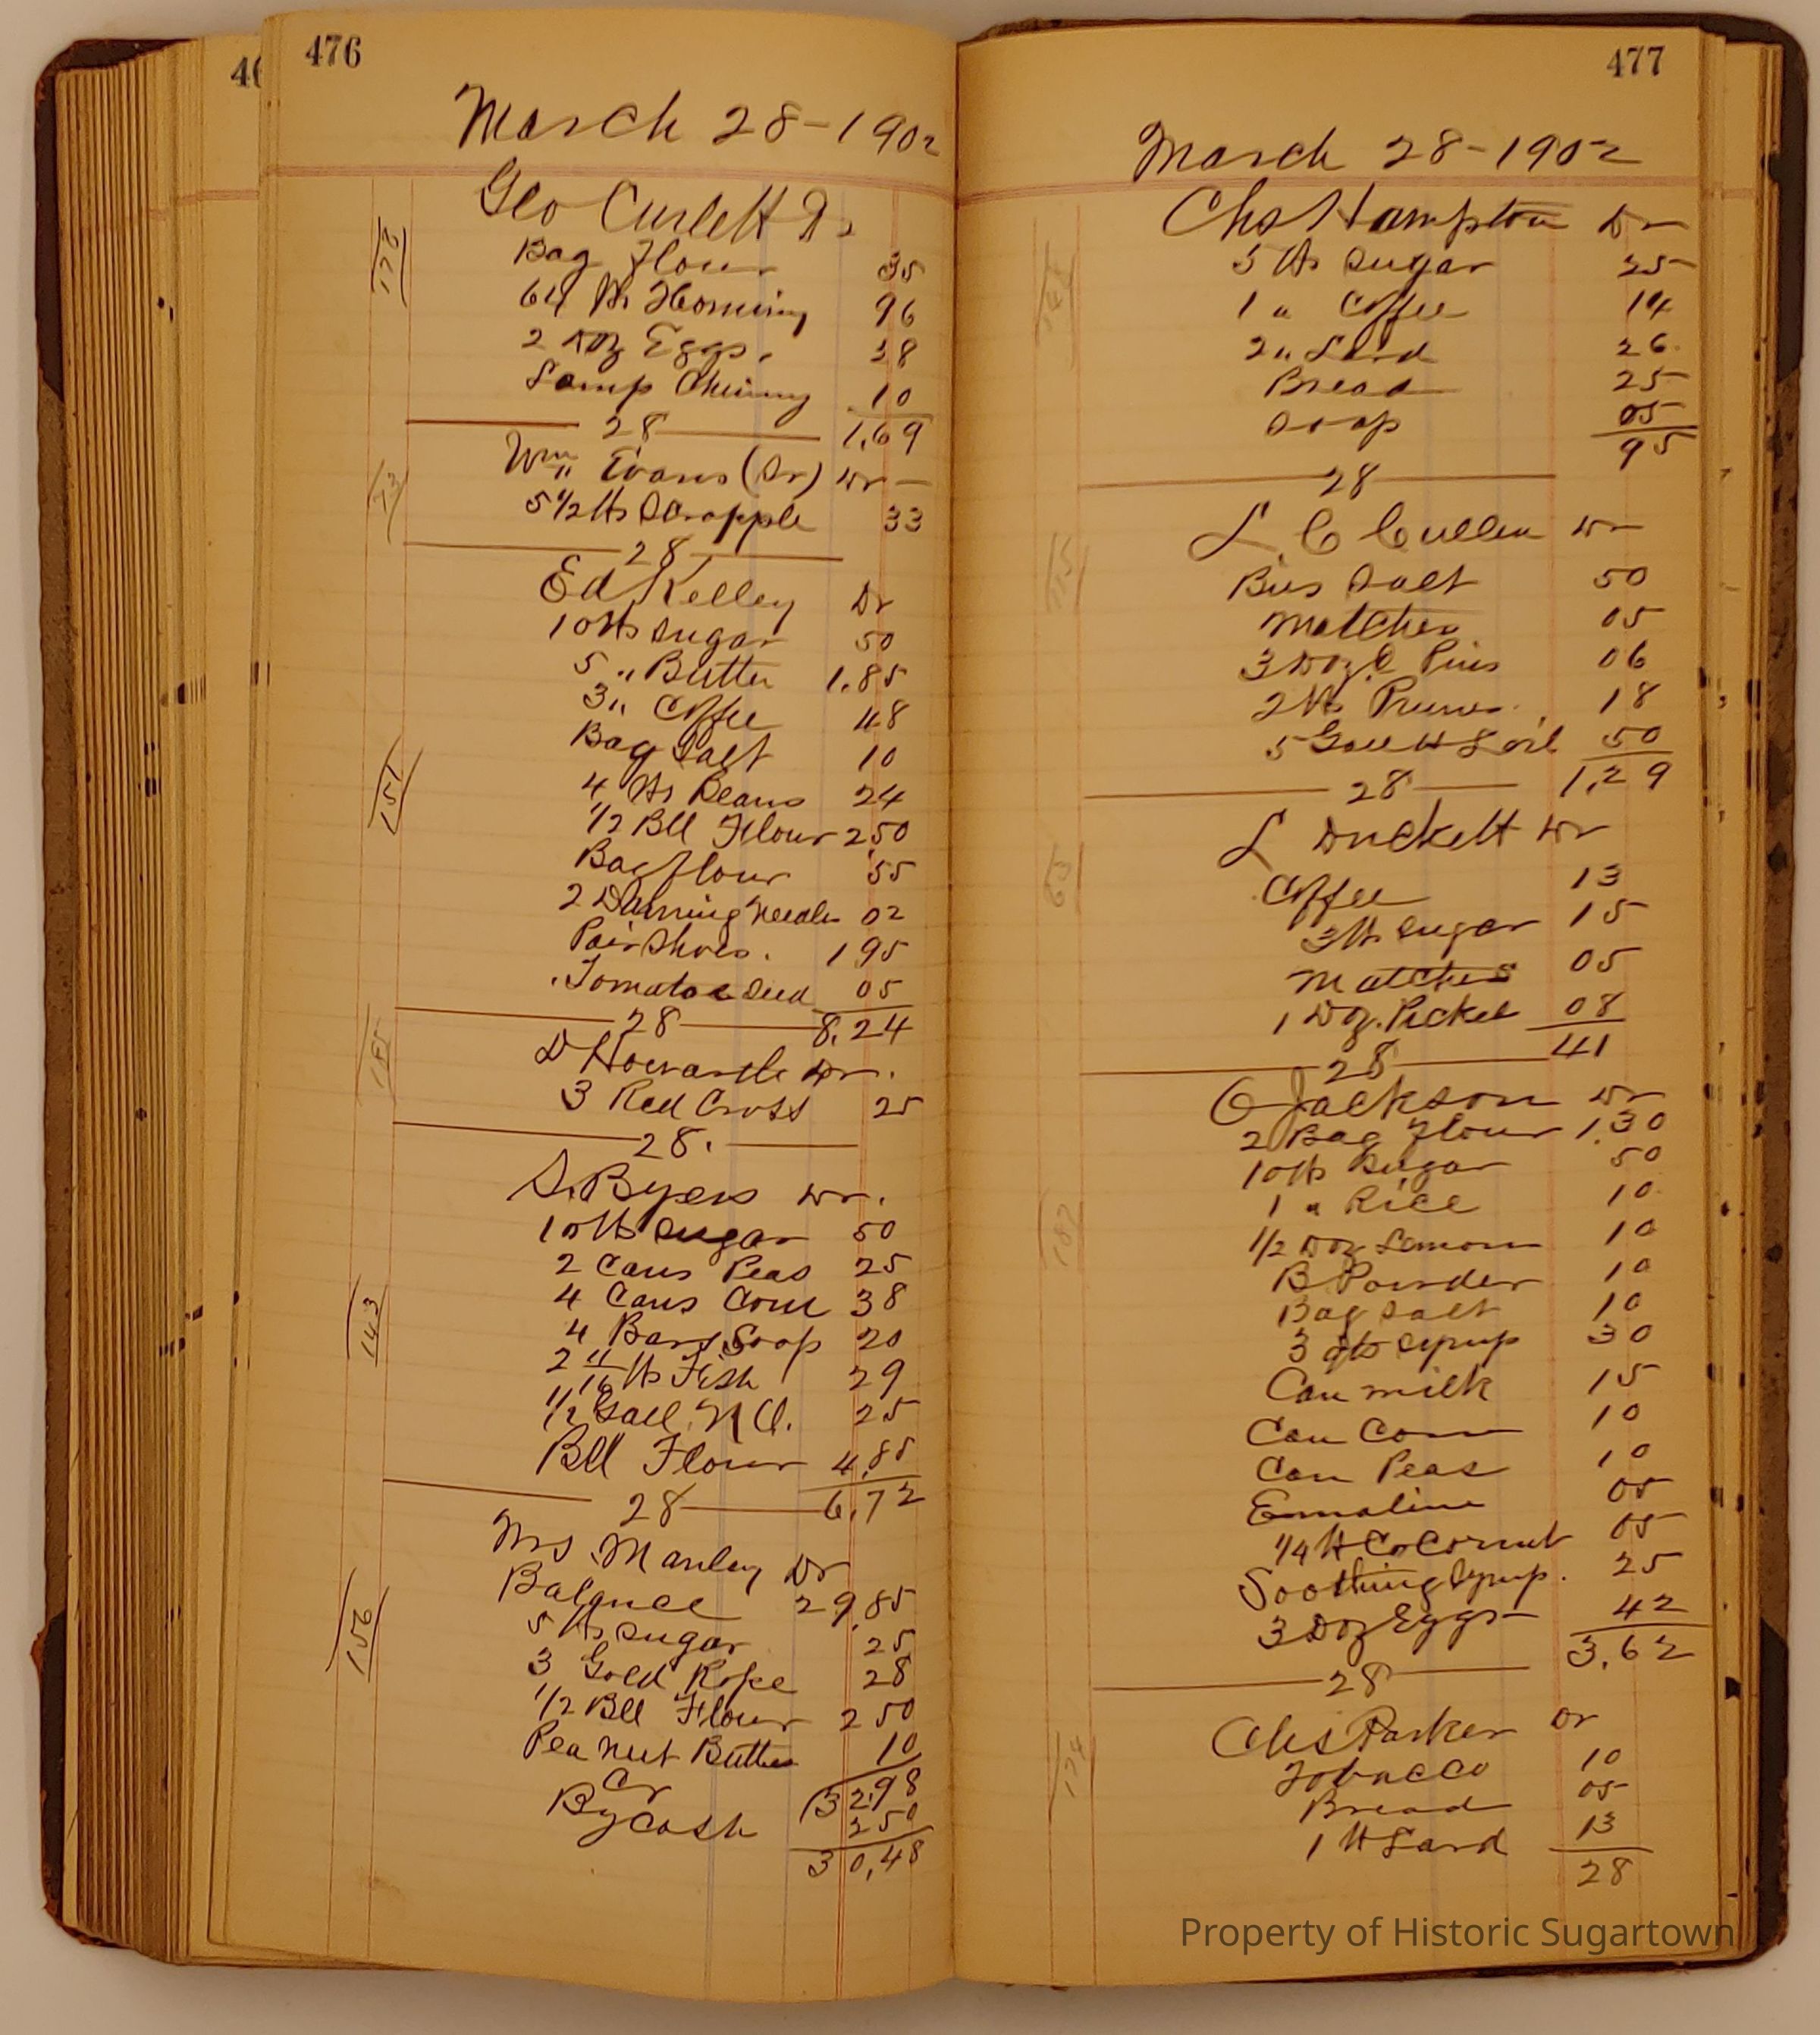 476
March 28-1902
Geo Curlett Dr
172
Bag Flour 35
64 lbs Hominy 96
2 Doz Eggs. 28
Lamp Chimny 10
28 1.69
Wm Evans (Sr) Dr
73
5 1/2 lbs Scrapple 33
28
Ed Kelley Dr
10 lbs Sugar 50
5 " Butter 1.85
3 " Coffee 48
Bag Salt 10
151
4 lbs Beans 24
1/2 Bll Flour 2.50
Bag flour 55
2 Darning Needles 02
Pair Shoes. 1 95
Tomatoe Seed 05
28 8.24
D Dr.
185
3 Red Cross 25
28.
S. Byers Dr.
10 lbs Sugar 50
2 Cans Peas 25
4 Cans Corn 38
143
4 Bars Soap 20
2 11/16 lbs Fish 29
1/2 Gall. N O. 25
Bll Flour 4.85
28 6.72
Mrs. Manley Dr
Balance 29.85
5 lbs Sugar 25
156
3 Gold Rope 28
1/2 Bll Flour 2 50
Pea nut Butter 10
Cr 32.98
By Cash 2 50
30.48
477
March 28-1902
Chs Hampton Dr
5 lbs Sugar 25
1 " Coffee 14
2 " Lard 26
Bread 25
Soap 05
95
28
L. C Cullen Dr
Bus Salt 50
Matches 05
3 Doz C Pins 06
2 lbs Prunes. 18
5 Gall H L oil 50
28 1.29
L Duckett Dr
63
Coffee 13
3 lbs Sugar 15
Matches 05
1 Doz. Pickel 08
41
28
C Jackson Dr
2 Bag Flour 1.30
10 lbs Sugar 50
1 " Rice 10
187
1/2 Doz Lemons 10
B Powder 10
Bag Salt 10
3 qts Syrup 30
Can milk 15
Can Corn 10
Can Peas 10
Enmaline 05
1/4 lb Cocornut 05
Soothing Syrup. 25
3 Doz Eggs 42
3.62
28
Chs Parker Dr
174
Tobacco 10
Bread 05
1 lb Lard 13
28
Property of Historic Sugartown